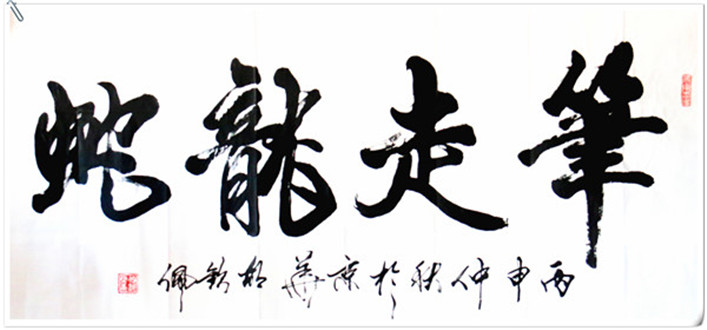 筆走龍蛇
丙申仲秋於京華胡欽佩